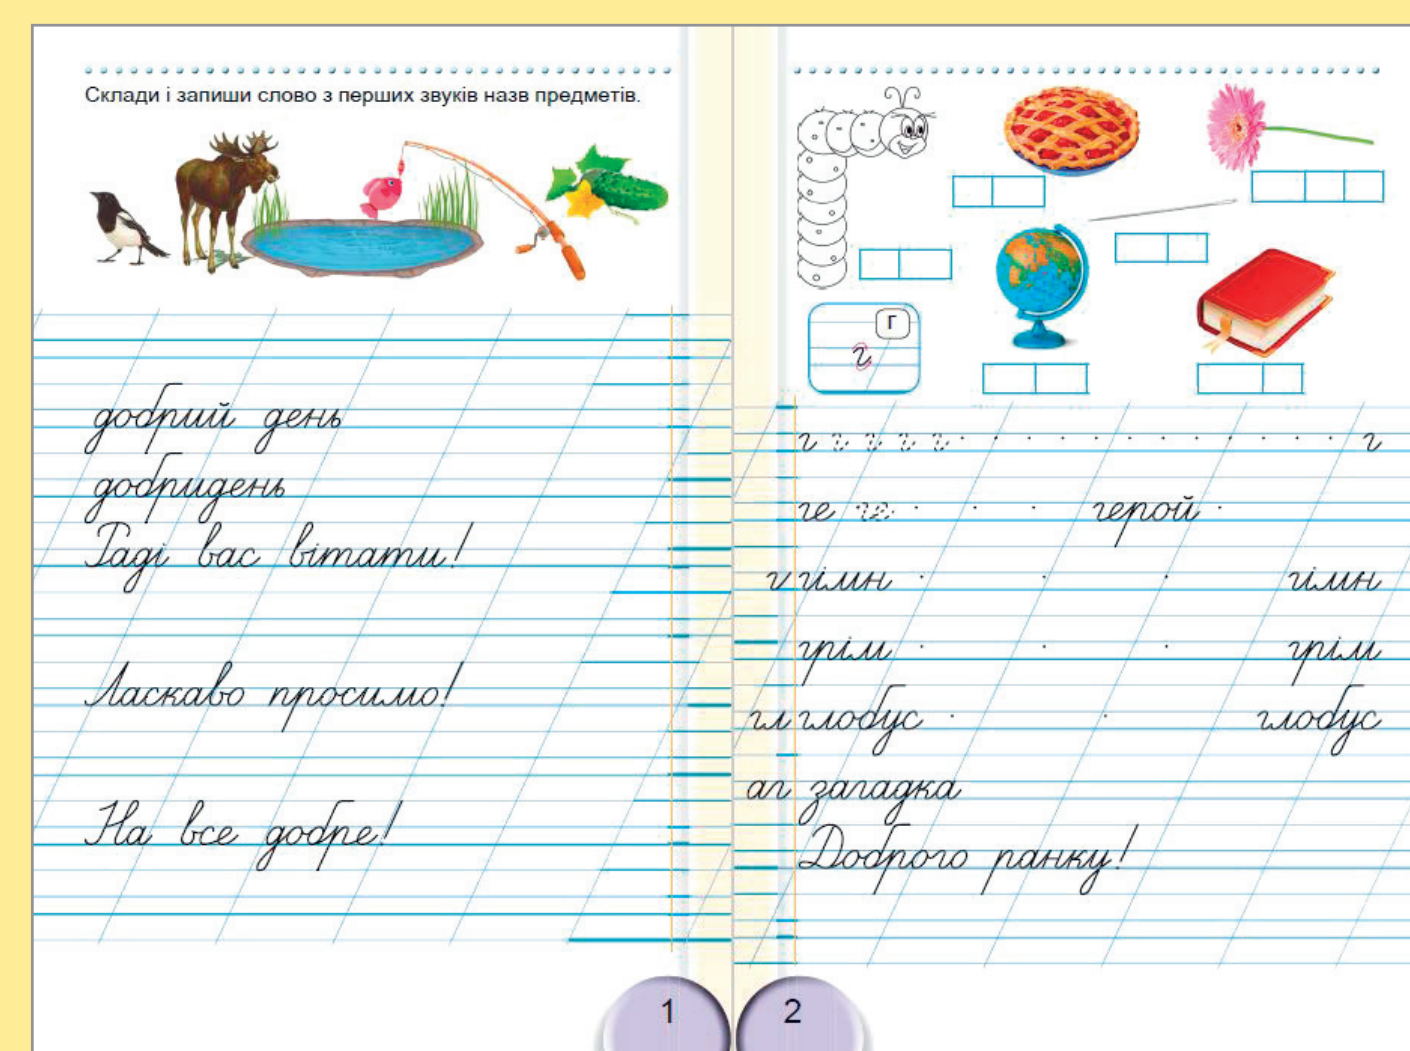 Склади і запиши слово з перших звуків назв предметів.
добрий день
добридень
Раді вас вітати!
Ласкаво просимо!
На все добре!
1
Г
г
г г г г г г
ге ге герой
г гімн гімн
грім грім
гл глобус глобус
аг загадка
Доброго ранку!
2